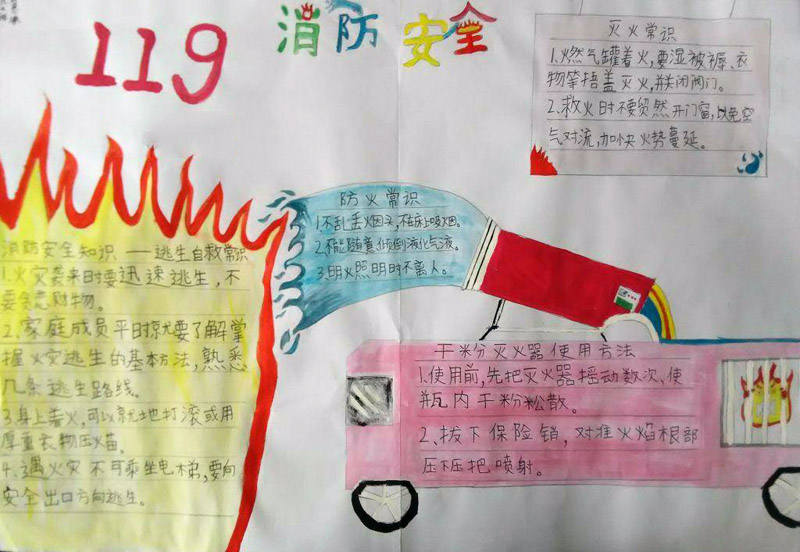 119
消防安全
灭火常识
1.燃气罐着火,要湿被褥、衣
物等捂盖灭火,并关闭阀门。
2.救火时不要贸然开门窗,以免空
气对流,加快火势蔓延。
防火常识
1.不乱丢火烟头,不在床上吸烟。
2.不能随意倾倒液化气液。
3.明火照明时不离人。
消防安全知识——逃生自救常识
1.火灾袭来时要迅速逃生,不
要贪恋财物。
2.家庭成员平时就要了解掌
握火灾逃生的基本方法,熟悉
几条逃生路线。
3.身上着火,可以就地打滚或用
厚重衣物压火苗。
4.遇火灾不可乘坐电梯,要向
安全出口方向逃生。
干粉灭火器使用方法
1.使用前,先把灭火器摇动数次、使
瓶内干粉松散。
2.拔下保险销,对准火焰根部
压下压把喷射。